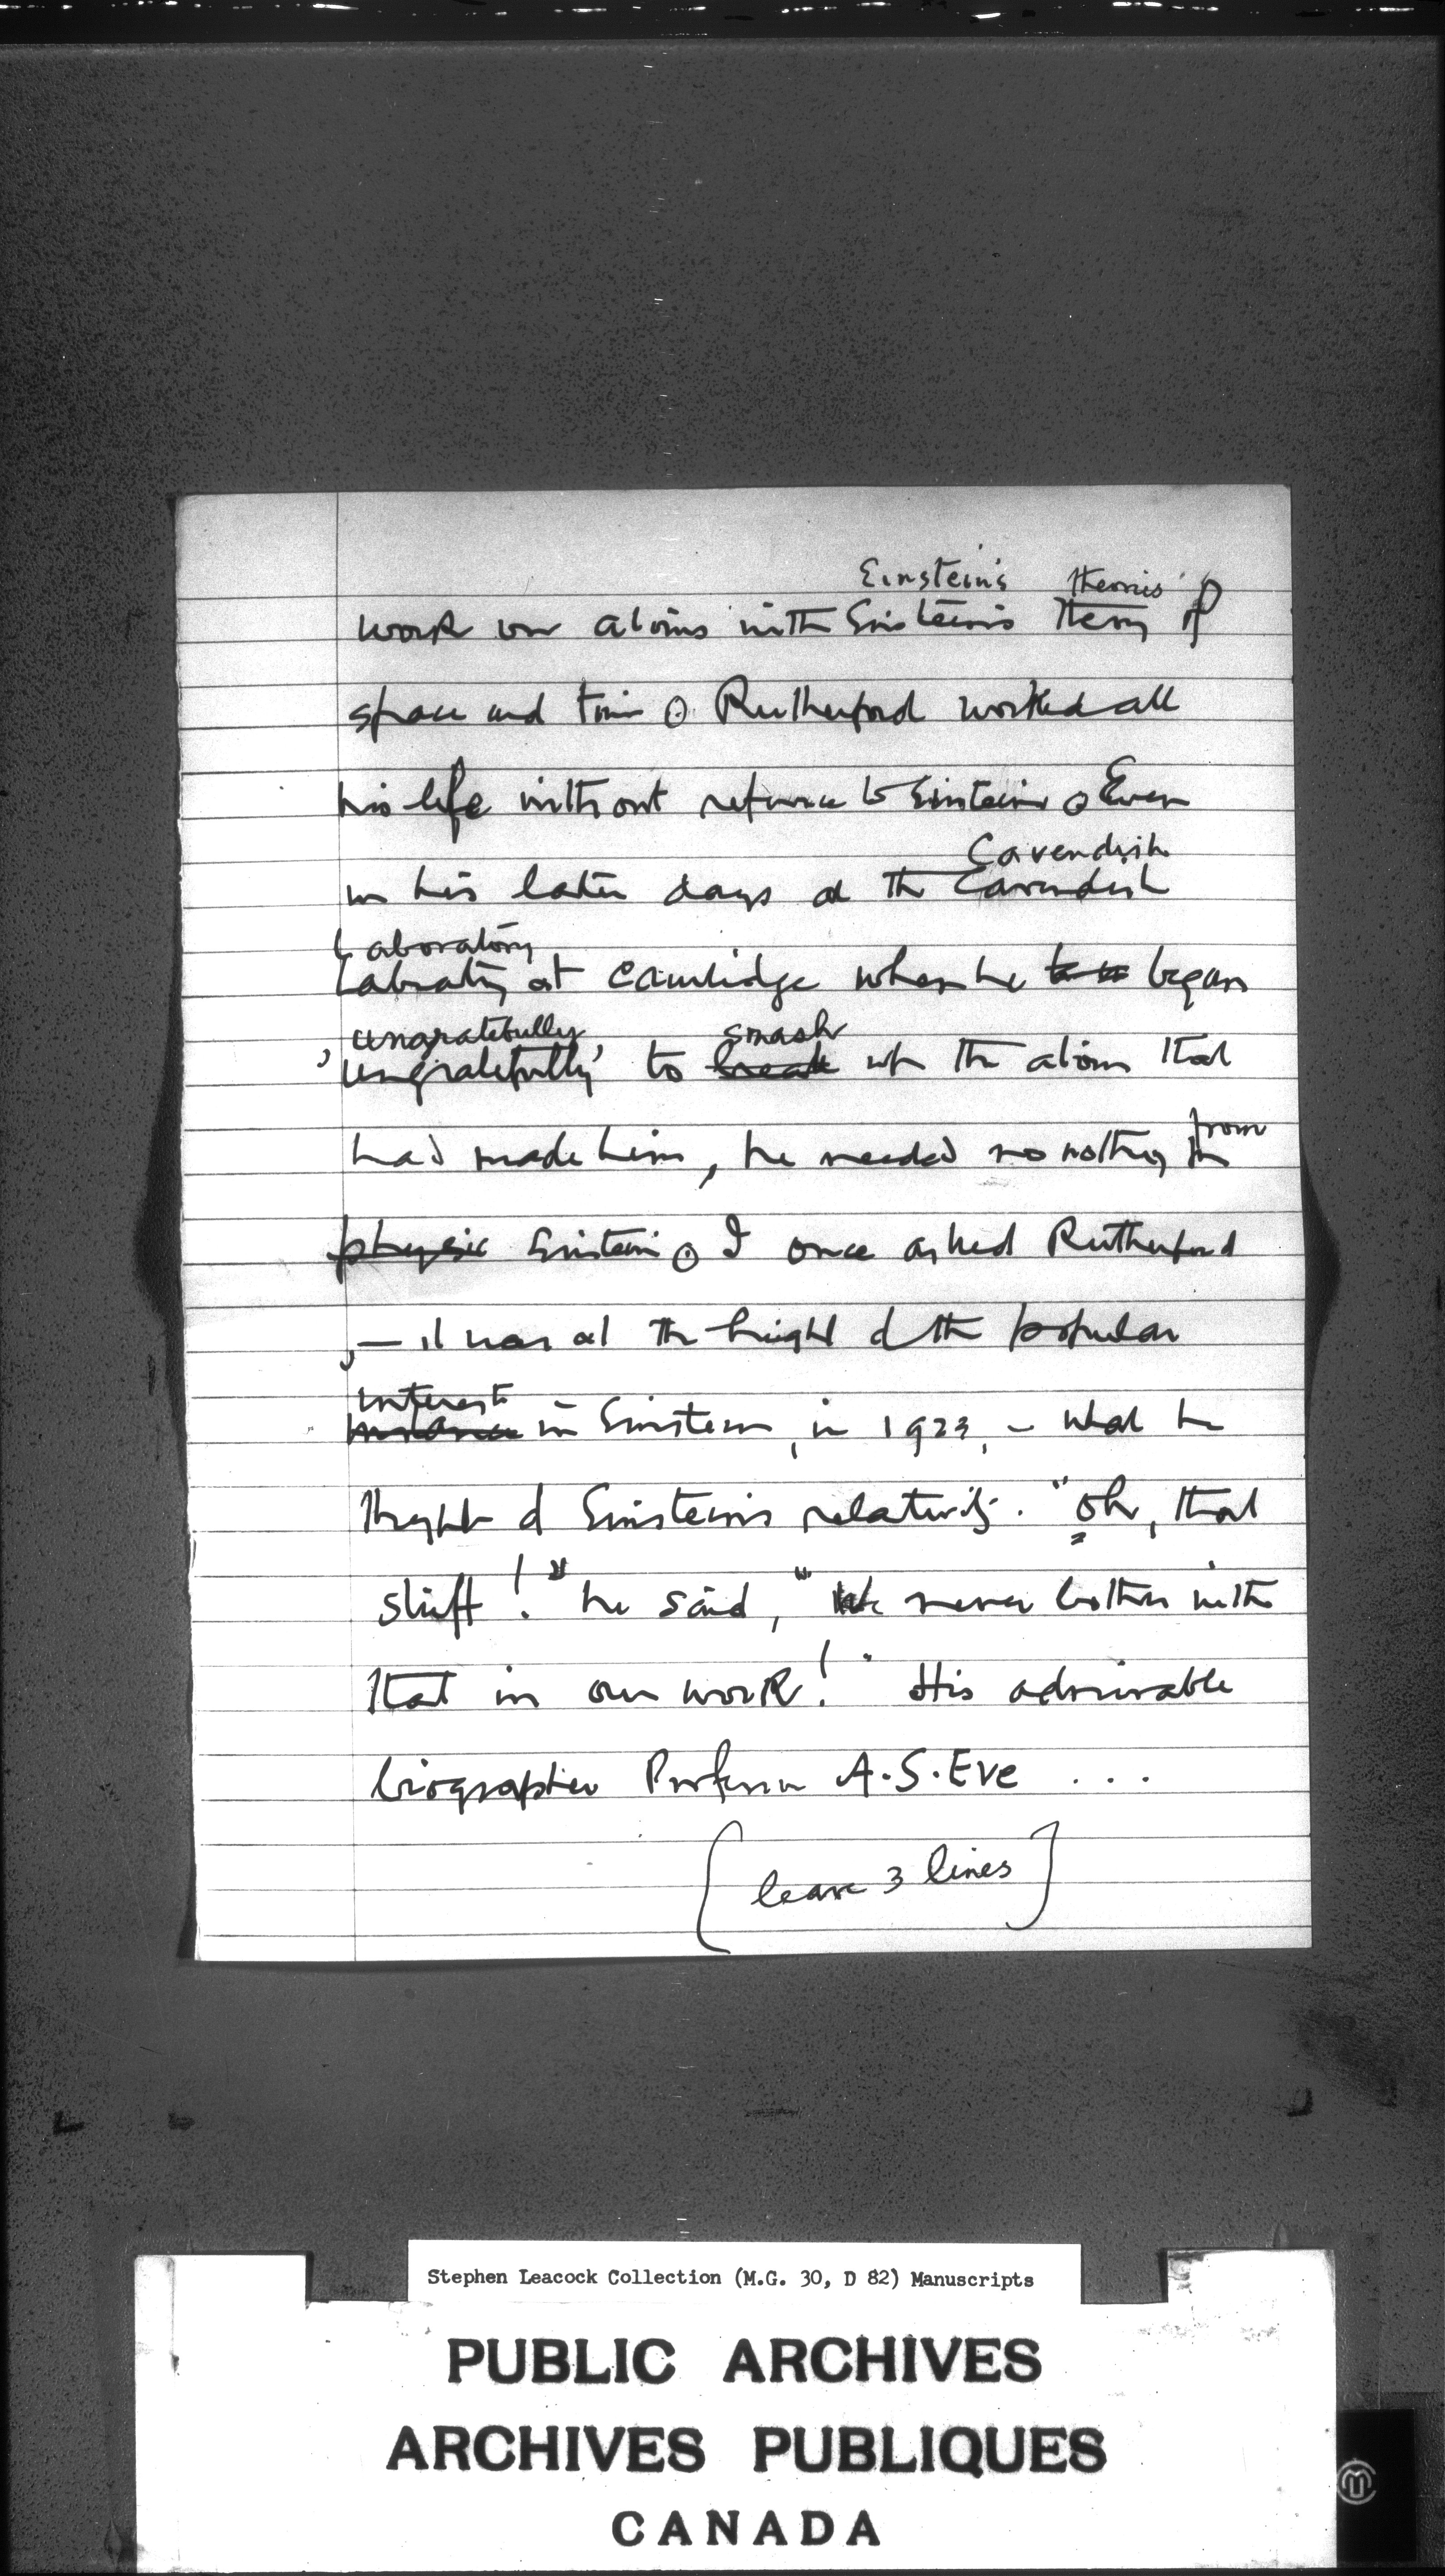 Einstein's theories
work on atoms with Einstein's theory of
space and time. Rutherford worked all
his life without reference to Einstein. Even
Cavendish
in his later days at the Cavendish
Laboratory
Laboratory at Cambridge when he began
ungratefully,
, ungratefully, to break up the atom that
smash
had made him, he needed no nothing from
from
physic Einstein. I once asked Rutherford
, — it was at the height of the popular
interest
in Einstein, in 1923, - what he
thought of Einstein's relativity. "Oh, that
stuff!" he said, "We never bother with
that in our work!" His admirable
biographer Professor A.S. Eve ...
[leave 3 lines]
Stephen Leacock Collection (M.G. 30, D 82) Manuscripts
PUBLIC ARCHIVES
ARCHIVES PUBLIQUES
CANADA